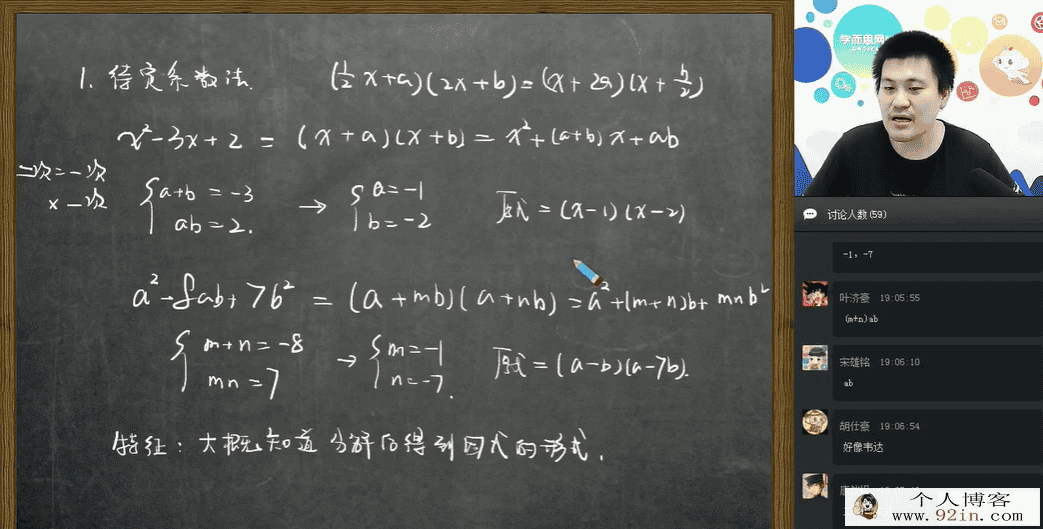 1. 待定系数法.
(½x+a)(2x+b)=(x+2a)(x+b/2)
x²-3x+2 = (x+a)(x+b) = x²+(a+b)x+ab
二次=一次
×一次
{a+b=-3
ab=2.
→ {a=-1
b=-2
原式=(x-1)(x-2)
a²-8ab+7b² = (a+mb)(a+nb)=a²+(m+n)b+mnb²
{m+n=-8
mn=7
→ {m=-1
n=-7.
原式=(a-b)(a-7b).
特征: 大概知道分解后得到因式的形式.
学而思网
讨论人数(59)
-1, -7
叶济豪 19:05:55
(m+n)ab
宋雄铭 19:06:10
ab
胡仕豪 19:06:54
好像韦达
个人博客
www.92in.com